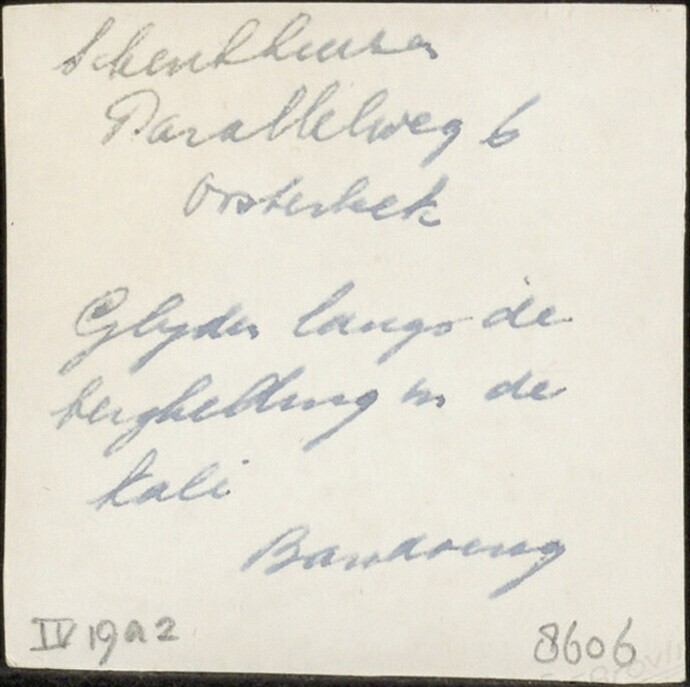 Schenkhuizen
Parallelweg 6
Oosterbeek
Glyden langs de
berghelling in de
kali
Bandoeng
IV 19a2
8606